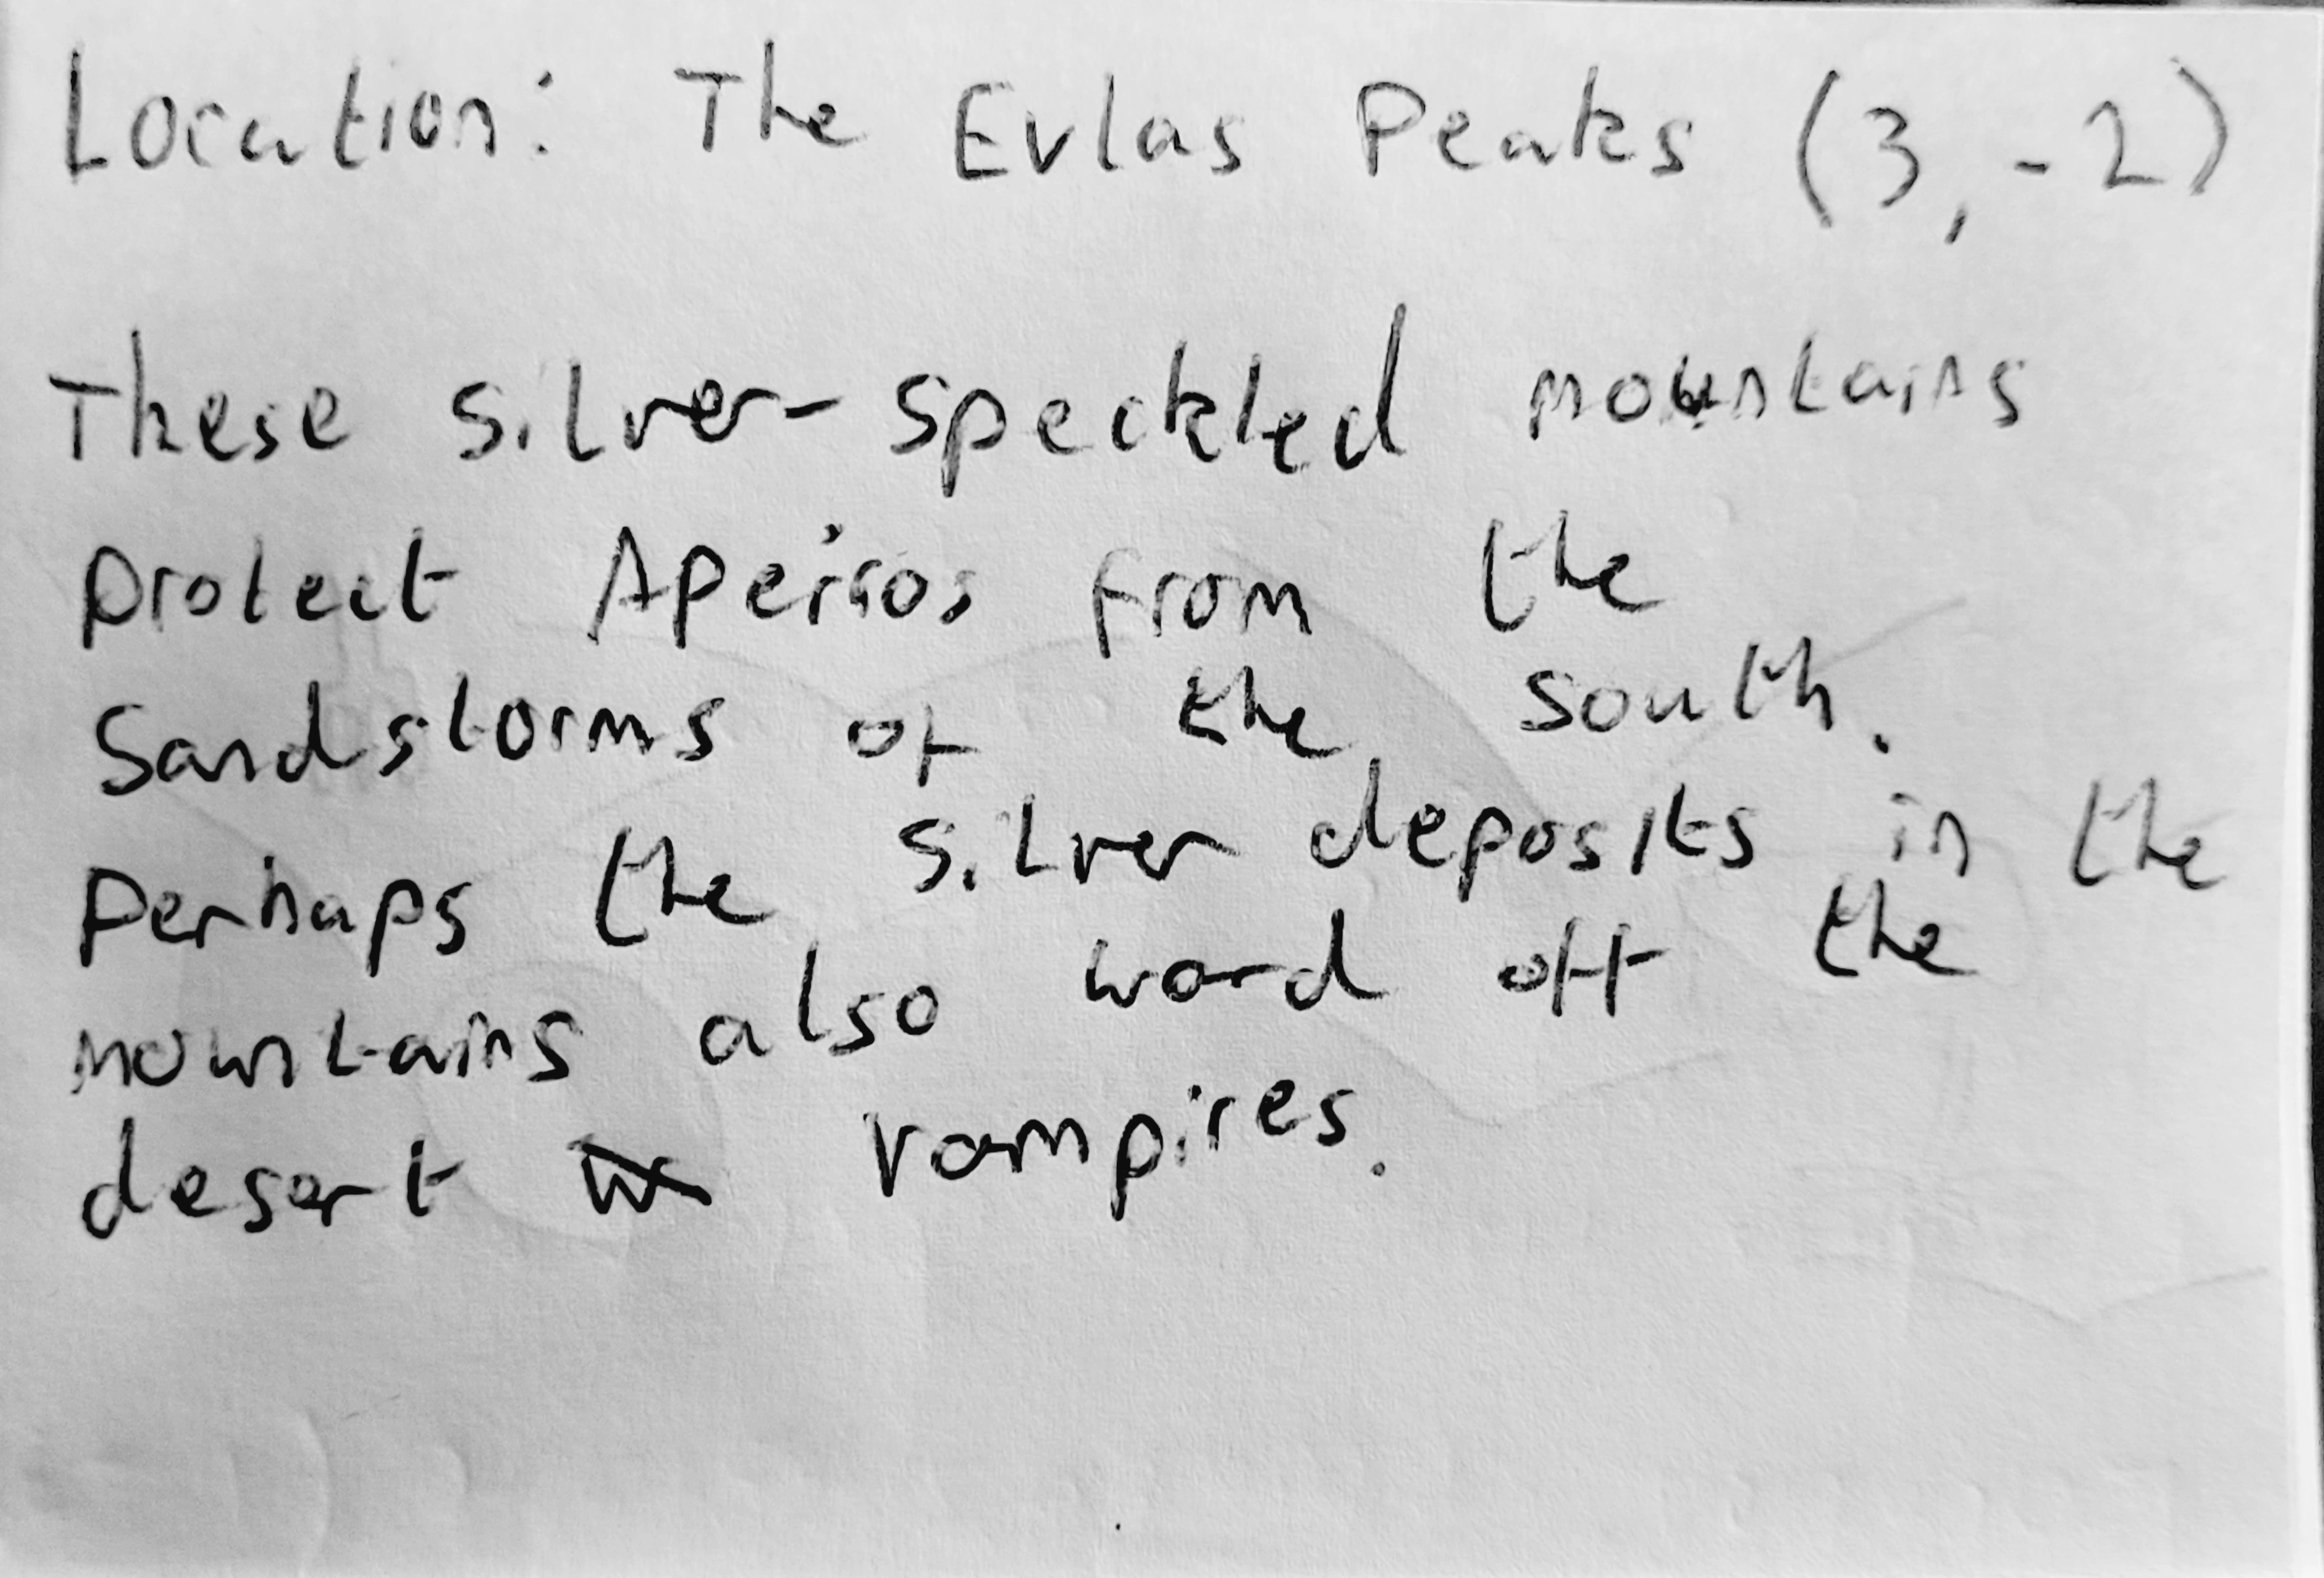 Location: The Evlas Peaks (3, -2)
These silver-speckled mountains
protect Apeiros from the
Sandstorms of the south.
Perhaps the silver deposits in the
mountains also ward off the
desert vampires.